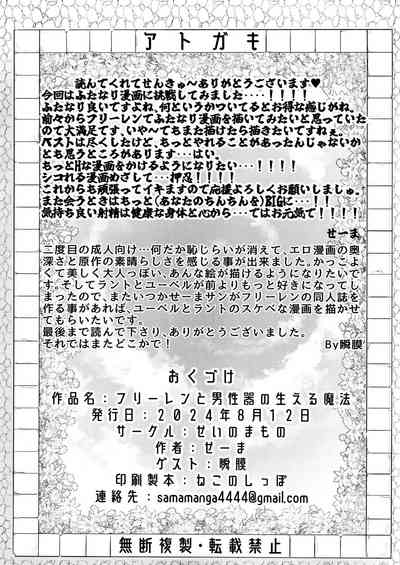 アトガキ
読んでくれてせんきゅ～ありがとうございます♥
今回はふたなり漫画に挑戦してみました‥‥！！！！
ふたなり良いですよね、何というかついてるとお得な感じがね。
前々からフリーレンでふたなり漫画を描いてみたいと思っていた
ので大満足です、いや～でもまた描けたら描きたいですねぇ。
ベストは尽くしたけど、もっとやれることがあったんじゃないか
とも思うところがあります‥‥はい。
もっとHな漫画をかけるようになりたい‥‥！！！！
シコれる漫画めざして‥‥押忍！！！！
これからも頑張ってイキますので応援よろしくお願いしましゅ。
また会うときはもっと(あなたのちんちんを)BIGに‥‥！！
気持ち良い射精は健康な身体と心から‥‥ではお元気で！！！！
せーま
二度目の成人向け…何だか恥じらいが消えて、エロ漫画の奥
深さと原作の素晴らしさを感じる事が出来ました。かっこよ
くて美しく大人っぽい、あんな絵が描けるようになりたいで
す。そしてラントとユーベルが前よりもっと好きになってしま
ったので、またいつかせーまサンがフリーレンの同人誌を
作る事があれば、ユーベルとラントのスケベな漫画を描かせ
てもらいたいです。
最後まで読んで下さり、ありがとうございました。
それではまたどこかで！
By瞬膜
おくづけ
作品名：フリーレンと男性器の生える魔法
発行日：2024年8月12日
サークル：せいのまもの
作者：せーま
ゲスト：瞬膜
印刷製本：ねこのしっぽ
連絡先：samamanga4444@gmail.com
無断複製・転載禁止